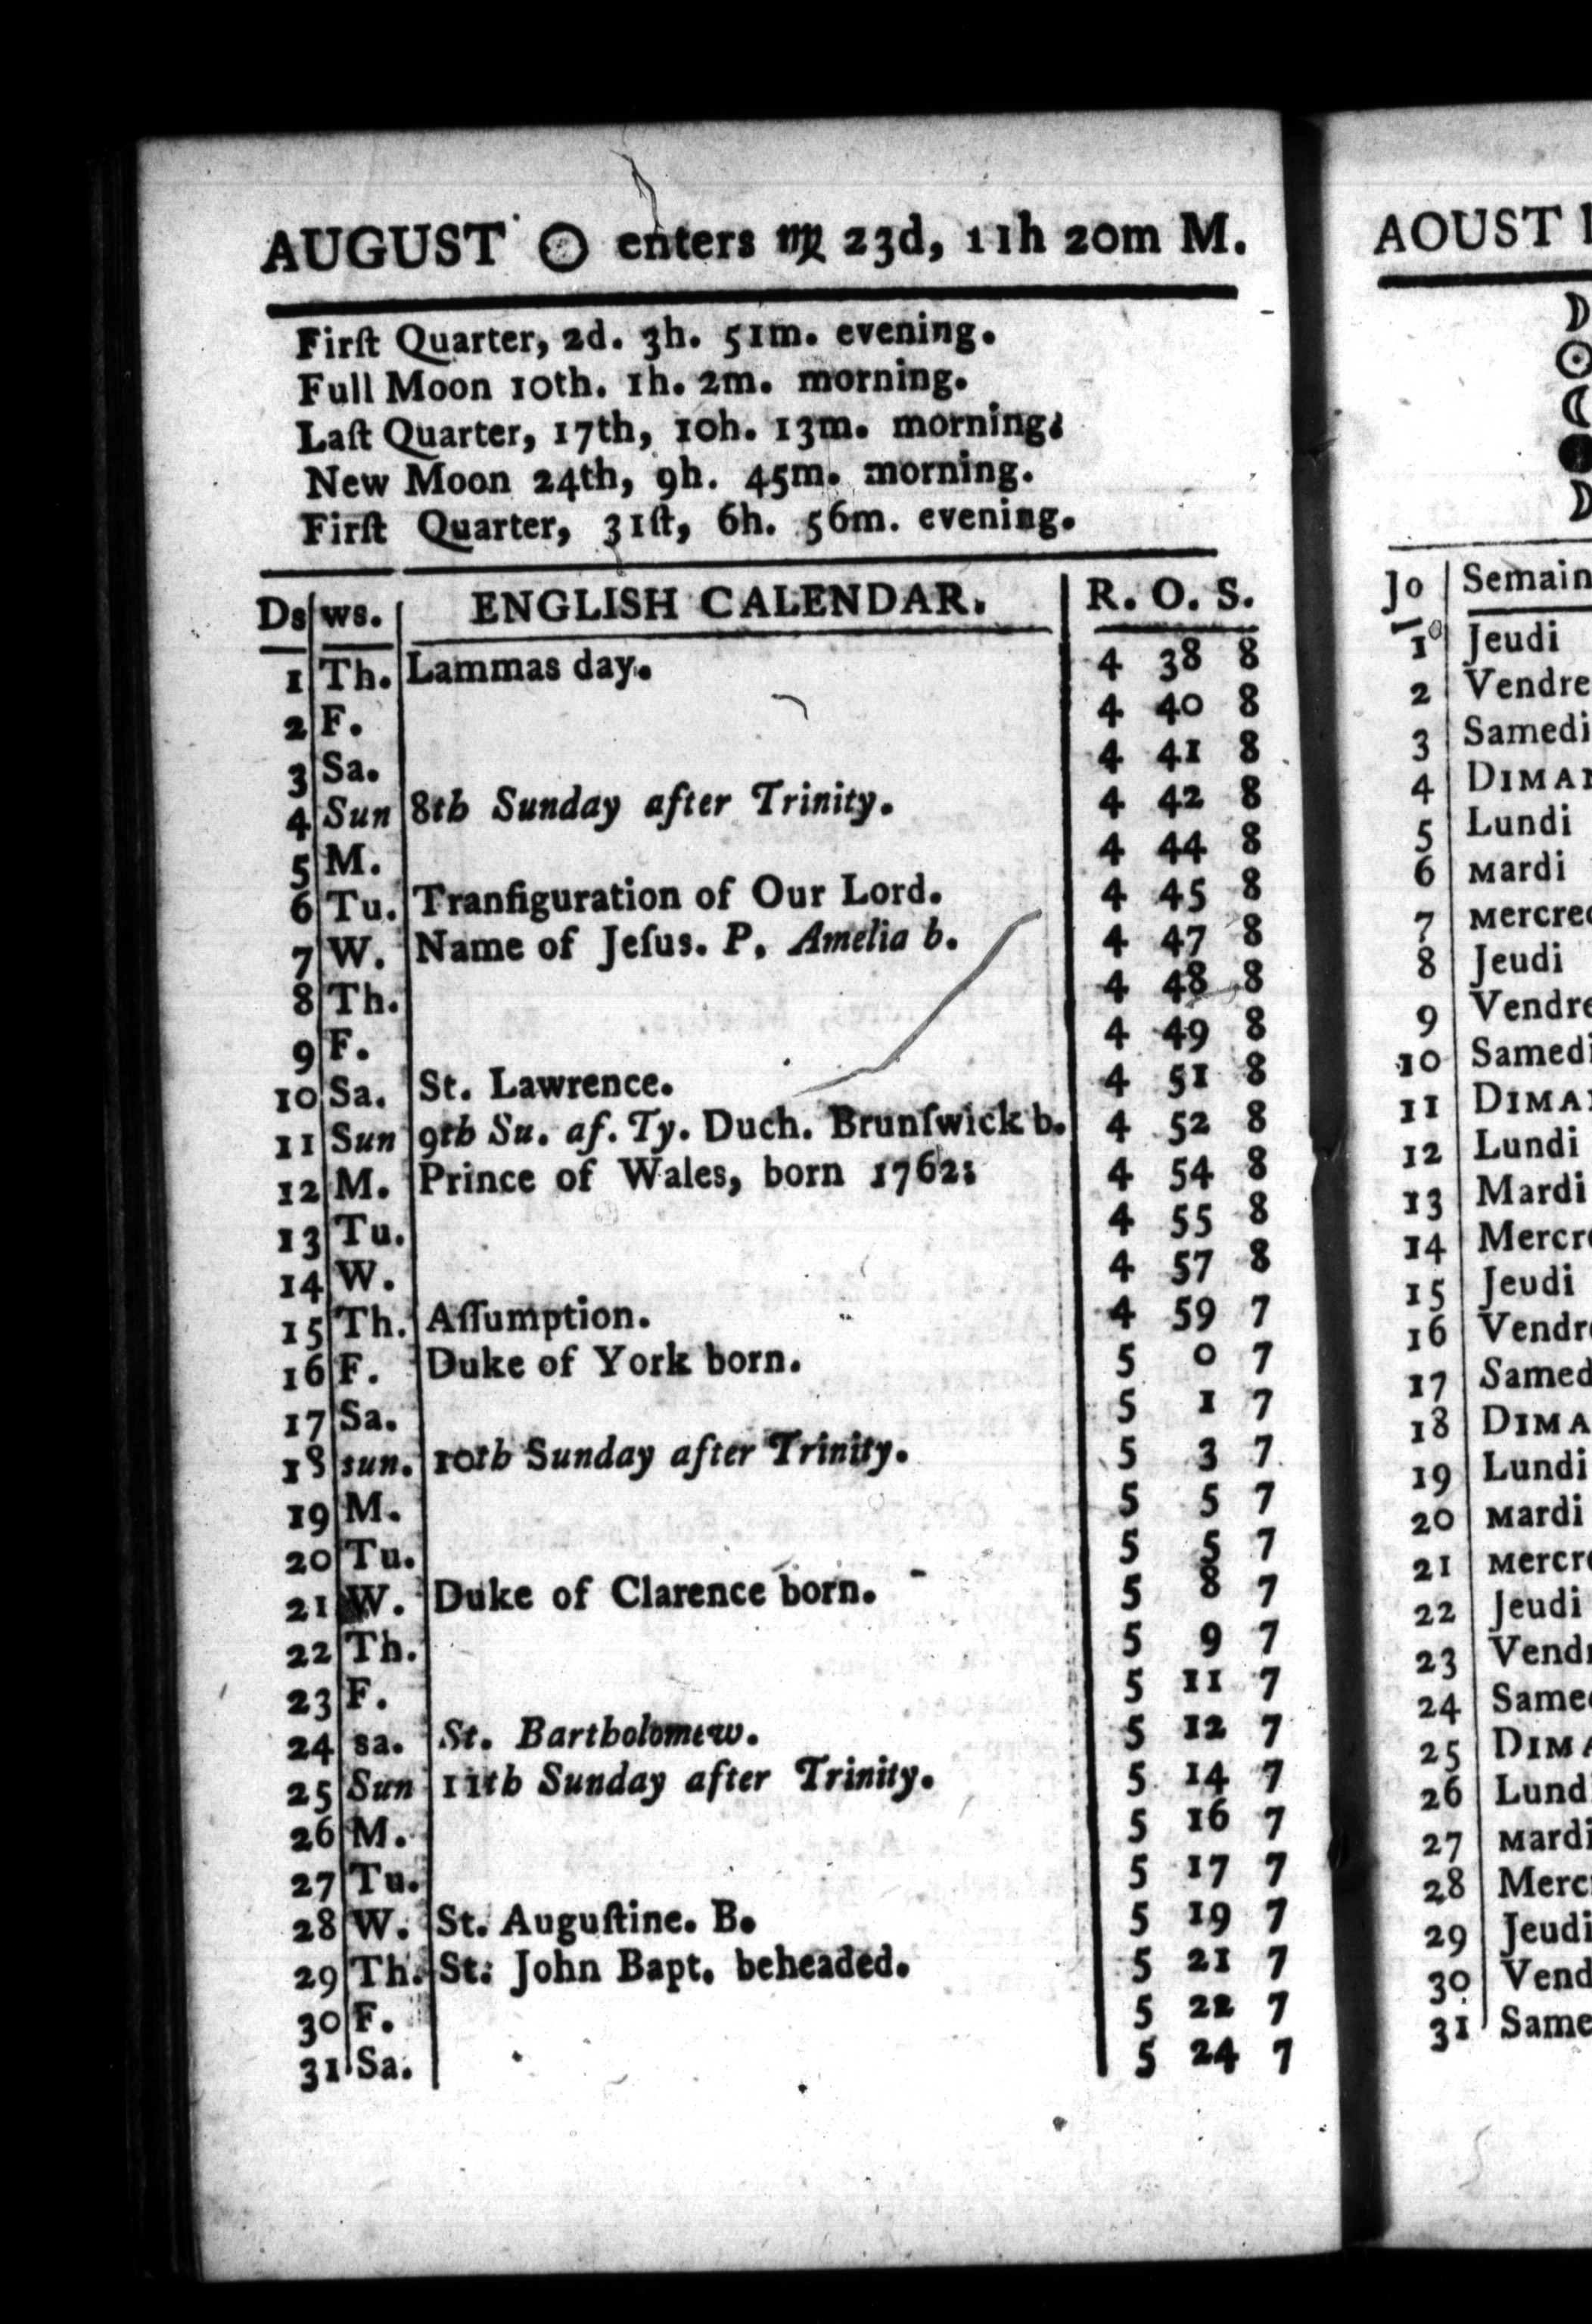 AUGUST ☉ enters ♍ 23d, 11h 20m M.
Firſt Quarter, 2d. 3h. 51m. evening.
Full Moon 10th. 1h. 2m. morning.
Laſt Quarter, 17th, 10h. 13m. morning.
New Moon 24th, 9h. 45m. morning.
Firſt Quarter, 31ſt, 6h. 56m. evening.
Ds ws. ENGLISH CALENDAR. R. O. S.
1 Th. Lammas day. 4 38 8
2 F. 4 40 8
3 Sa. 4 41 8
4 Sun 8th Sunday after Trinity. 4 42 8
5 M. 4 44 8
6 Tu. Tranfiguration of Our Lord. 4 45 8
7 W. Name of Jeſus. P. Amelia b. 4 47 8
8 Th. 4 48 8
9 F. 4 49 8
10 Sa. St. Lawrence. 4 51 8
11 Sun 9th Su. af. Ty. Duch. Brunſwick b. 4 52 8
12 M. Prince of Wales, born 1762: 4 54 8
13 Tu. 4 55 8
14 W. 4 57 8
15 Th. Aſſumption. 4 59 7
16 F. Duke of York born. 5 0 7
17 Sa. 5 1 7
18 sun. 10th Sunday after Trinity. 5 3 7
19 M. 5 5 7
20 Tu. 5 5 7
21 W. Duke of Clarence born. 5 8 7
22 Th. 5 9 7
23 F. 5 11 7
24 sa. St. Bartholomew. 5 12 7
25 Sun 11th Sunday after Trinity. 5 14 7
26 M. 5 16 7
27 Tu. 5 17 7
28 W. St. Auguſtine. B. 5 19 7
29 Th. St. John Bapt. beheaded. 5 21 7
30 F. 5 22 7
31 Sa. 5 24 7
AOUST
☽
☉
☾
●
☽
Jo Semain
1 Jeudi
2 Vendre
3 Samedi
4 DIMAN
5 Lundi
6 Mardi
7 Mercred
8 Jeudi
9 Vendre
10 Samedi
11 DIMAN
12 Lundi
13 Mardi
14 Mercre
15 Jeudi
16 Vendre
17 Samed
18 DIMA
19 Lundi
20 Mardi
21 Mercre
22 Jeudi
23 Vendr
24 Same
25 DIMA
26 Lund
27 Mardi
28 Merc
29 Jeudi
30 Vend
31 Same